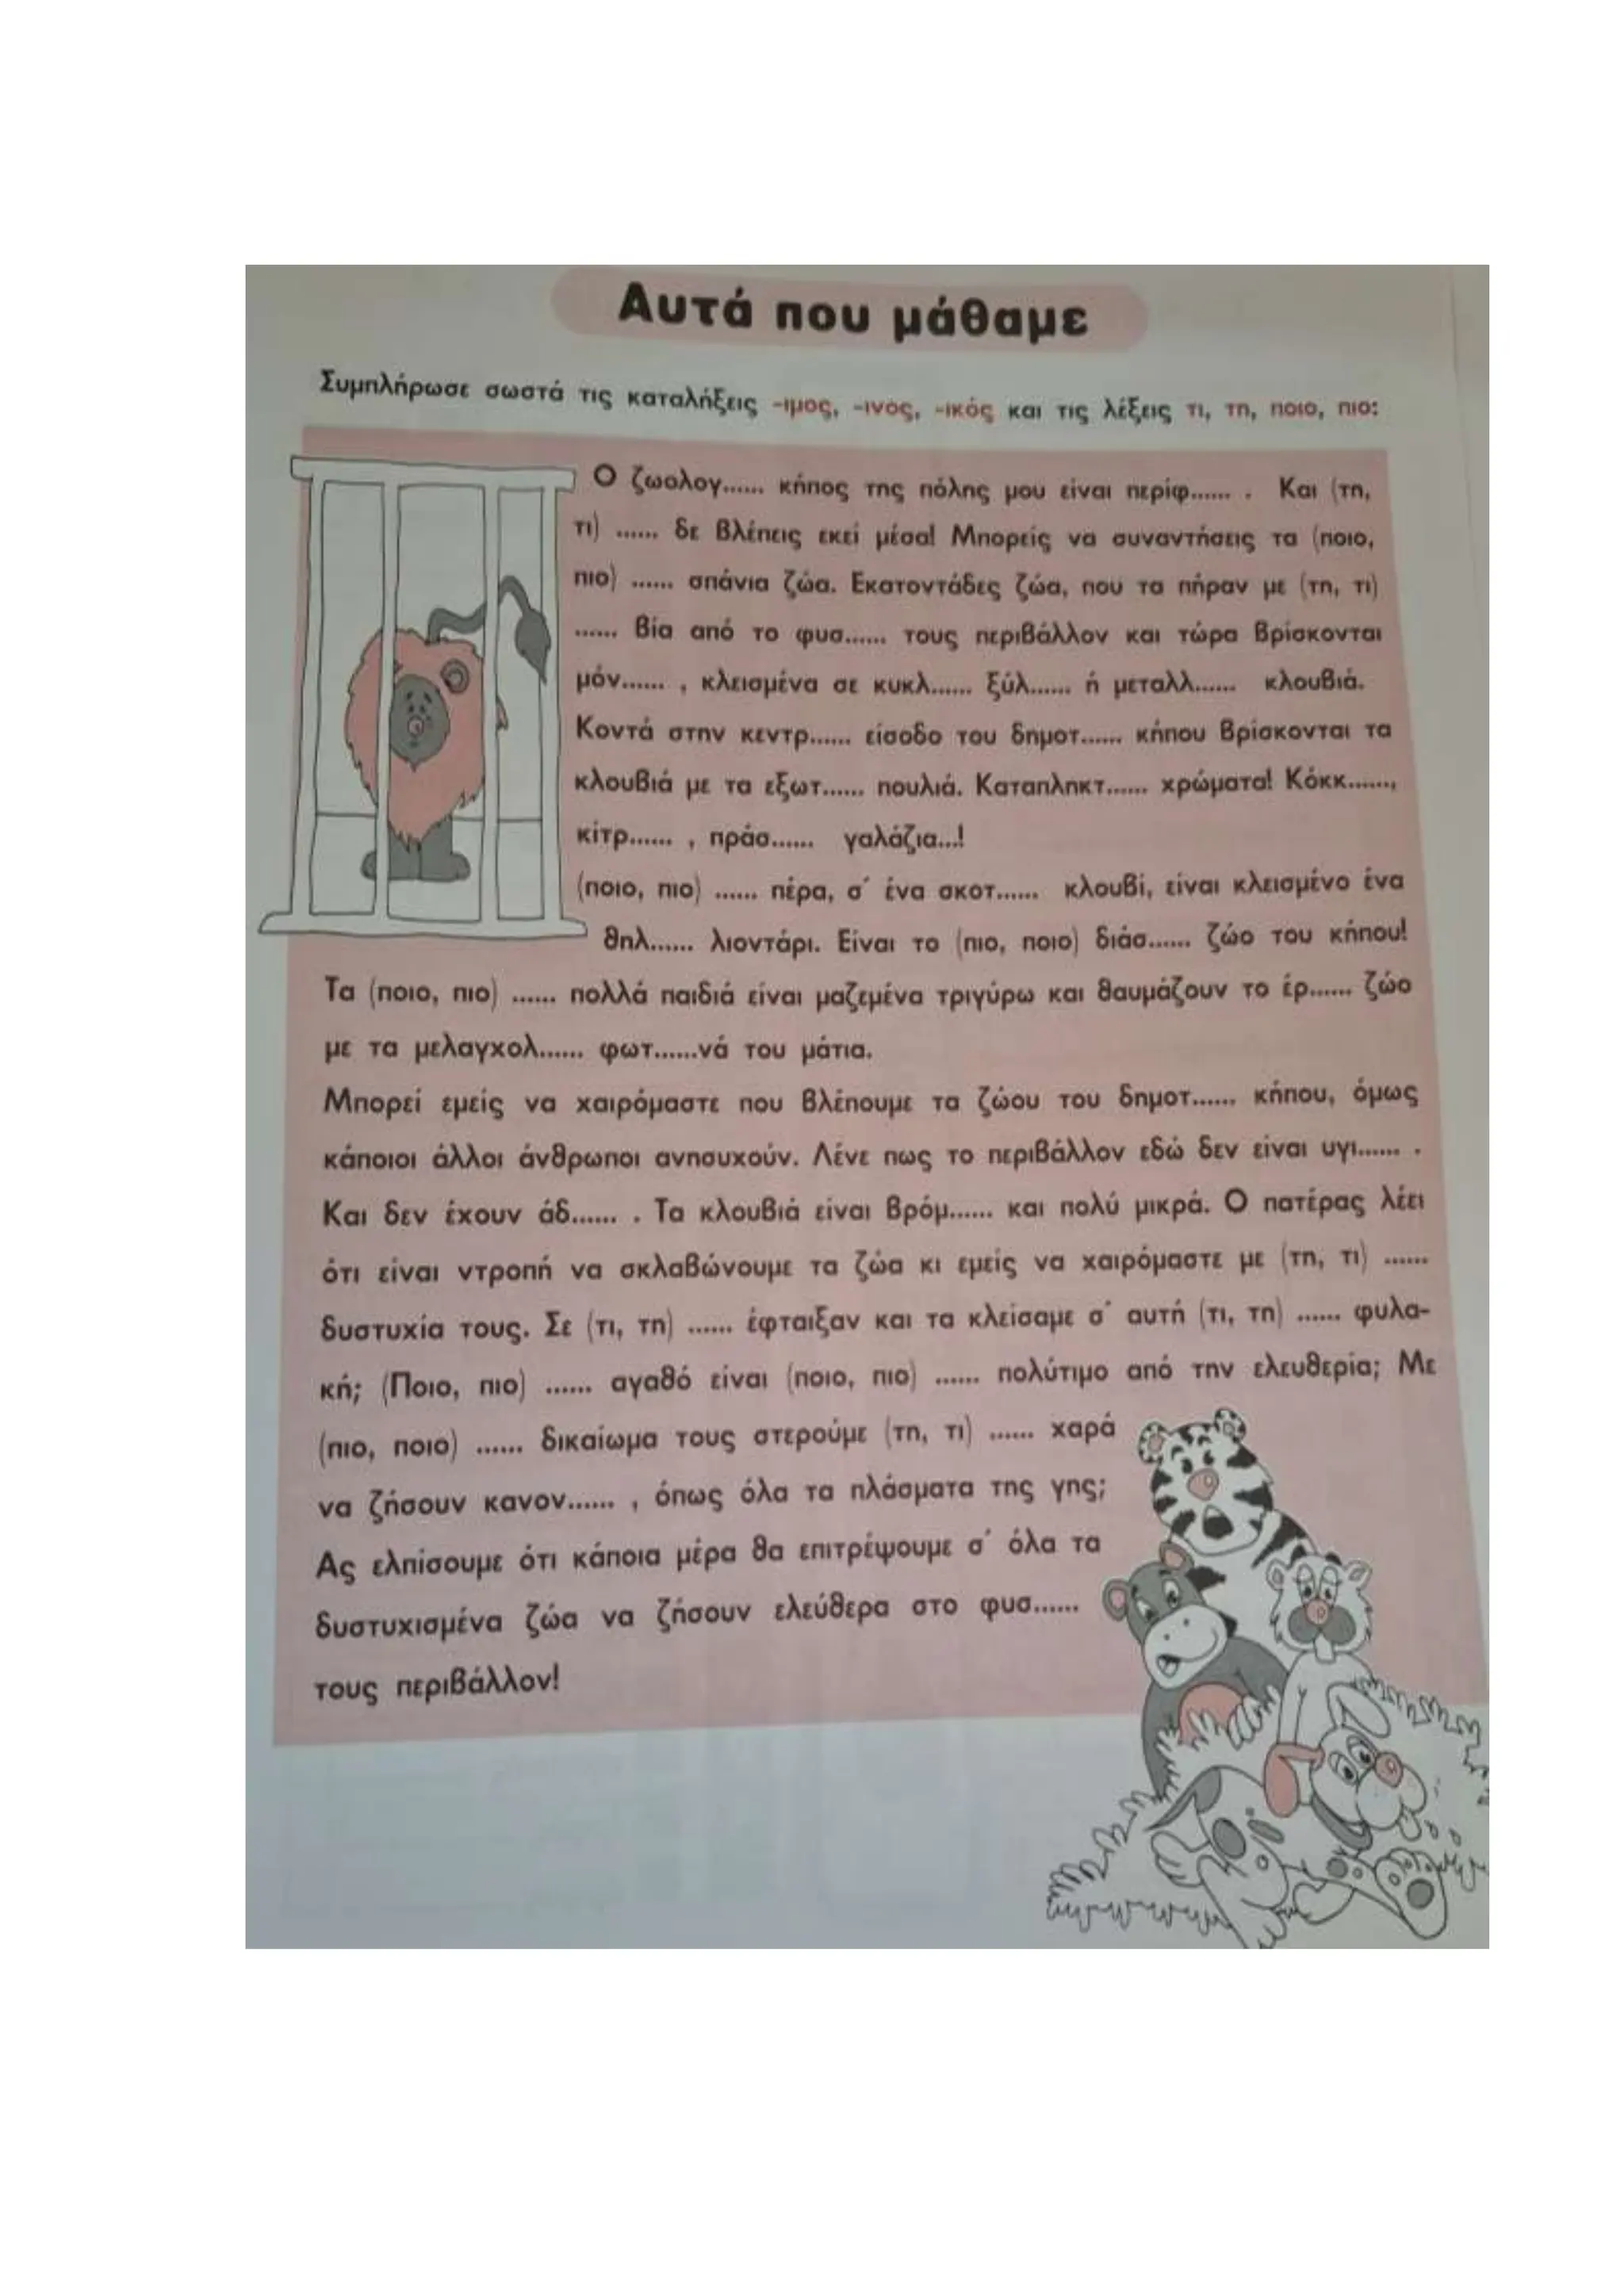 Αυτά που μάθαμε
Συμπλήρωσε σωστά τις καταλήξεις -ιμος, -ινος, -ικός και τις λέξεις τι, τη, ποιο, πιο:
Ο ζωολογ...... κήπος της πόλης μου είναι περίφ...... . Και (τη,
τι) ...... δε βλέπεις εκεί μέσα! Μπορείς να συναντήσεις τα (ποιο,
πιο) ...... σπάνια ζώα. Εκατοντάδες ζώα, που τα πήραν με (τη, τι)
...... βία από το φυσ...... τους περιβάλλον και τώρα βρίσκονται
μόν...... , κλεισμένα σε κυκλ...... ξύλ...... ή μεταλλ...... κλουβιά.
Κοντά στην κεντρ...... είσοδο του δημοτ...... κήπου βρίσκονται τα
κλουβιά με τα εξωτ...... πουλιά. Καταπληκτ...... χρώματα! Κόκκ......,
κίτρ...... , πράσ...... γαλάζια...!
(ποιο, πιο) ...... πέρα, σ' ένα σκοτ...... κλουβί, είναι κλεισμένο ένα
θηλ...... λιοντάρι. Είναι το (πιο, ποιο) διάσ...... ζώο του κήπου!
Τα (ποιο, πιο) ...... πολλά παιδιά είναι μαζεμένα τριγύρω και θαυμάζουν το έρ...... ζώο
με τα μελαγχολ...... φωτ......νά του μάτια.
Μπορεί εμείς να χαιρόμαστε που βλέπουμε τα ζώου του δημοτ...... κήπου, όμως
κάποιοι άλλοι άνθρωποι ανησυχούν. Λένε πως το περιβάλλον εδώ δεν είναι υγι...... .
Και δεν έχουν άδ...... . Τα κλουβιά είναι βρόμ...... και πολύ μικρά. Ο πατέρας λέει
ότι είναι ντροπή να σκλαβώνουμε τα ζώα κι εμείς να χαιρόμαστε με (τη, τι) ......
δυστυχία τους. Σε (τι, τη) ...... έφταιξαν και τα κλείσαμε σ' αυτή (τι, τη) ...... φυλα-
κή; (Ποιο, πιο) ...... αγαθό είναι (ποιο, πιο) ...... πολύτιμο από την ελευθερία; Με
(πιο, ποιο) ...... δικαίωμα τους στερούμε (τη, τι) ...... χαρά
να ζήσουν κανον...... , όπως όλα τα πλάσματα της γης;
Ας ελπίσουμε ότι κάποια μέρα θα επιτρέψουμε σ' όλα τα
δυστυχισμένα ζώα να ζήσουν ελεύθερα στο φυσ......
τους περιβάλλον!